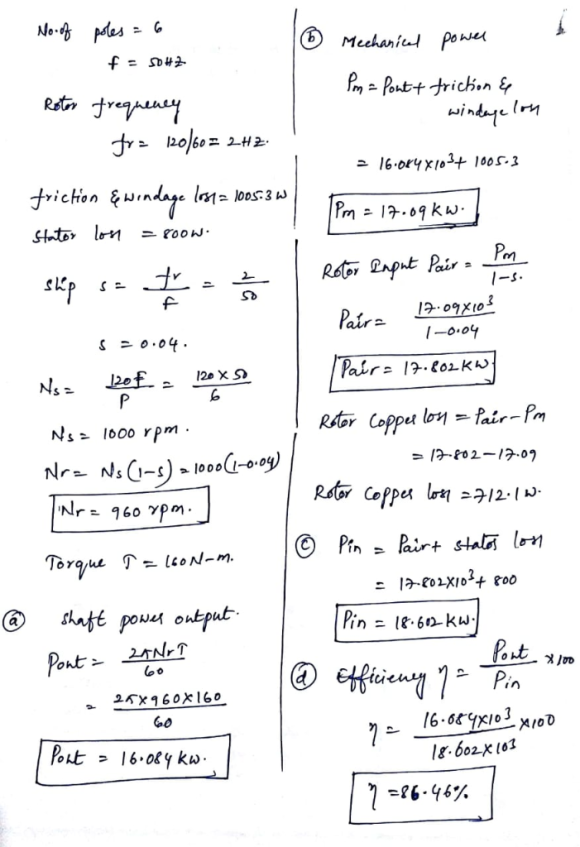 No. of poles = 6
f = 50HZ
Rotor frequency
fr = 120/60 = 2HZ.
friction & windage loss = 1005.3 W
Stator loss = 800W.
slip s = fr/f = 2/50
s = 0.04.
Ns = 120f/P = 120 X 50/6
Ns = 1000 rpm.
Nr = Ns(1-s) = 1000(1-0.04)
Nr = 960 rpm.
Torque T = 160N-m.
(a) shaft power output.
Pout = 2πNrT/60
= 2πx960x160/60
Pout = 16.084 kw.
(b) Mechanical power
Pm = Pout + friction &
windage loss
= 16.084x10³ + 1005.3
Pm = 17.09 kw.
Rotor Input Pair = Pm/1-s.
Pair = 17.09x10³/1-0.04
Pair = 17.802 kw
Rotor Copper loss = Pair - Pm
= 17.802 - 17.09
Rotor Copper loss = 712.1 W.
(c) Pin = Pair + stator loss
= 17.802x10³ + 800
Pin = 18.602 kw.
(d) Efficiency η = Pout/Pin x100
η = 16.084x10³/18.602x10³ x100
η = 86.46%